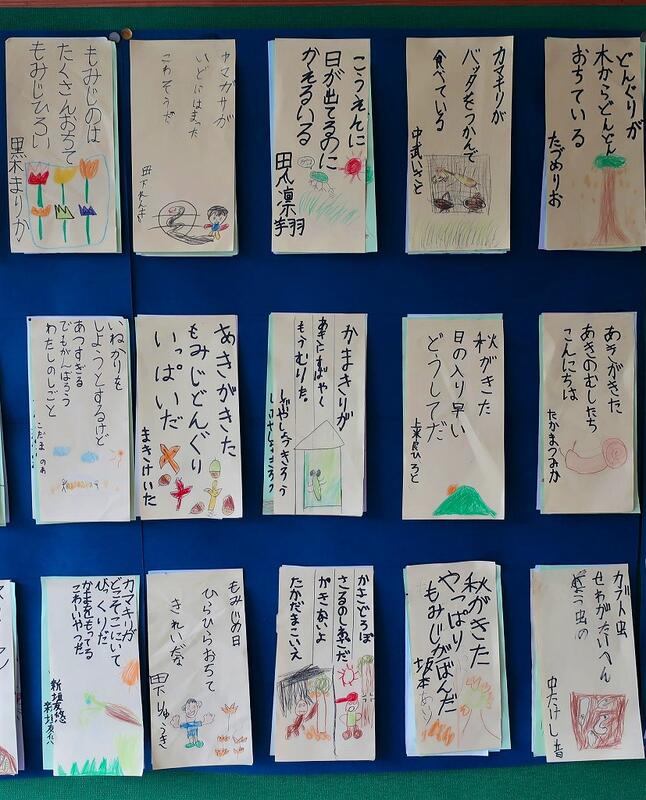 どんぐりが
木からどんどん
おちている
たづめりお
カマキリが
バッタをつかんで
食べている
中武いさと
こうえんに
日が出てるのに
かえるいる
田爪凛翔
ヤマガサが
いどにはまった
こわそうだ
田下
もみじのは
たくさんおちて
もみじひろい
黒木まりか
あきがきた
あきのむしたち
こんにちは
たかまつみか
秋がきた
日の入り早い
どうしてだ
ひろと
かまきりが
あきにすばやく
もうむりた。
あきがきた
もみじどんぐり
いっぱいだ
まきけいた
いねかりを
しようとするけど
あつすぎる
でもがんばろう
わたしのしごと
こだま のあ
カブト虫
せわがたいへん
よう虫の
中たけし音
秋がきた
やっぱり
もみじがばんだ
坂本
さるのしわざだ
がきないよ
もみじの日
ひらひらおちて
きれいだな
田下しゅうき
カマキリが
どこそこにいて
びっくりだ
かまをもってる
こわーいやつだ
新垣